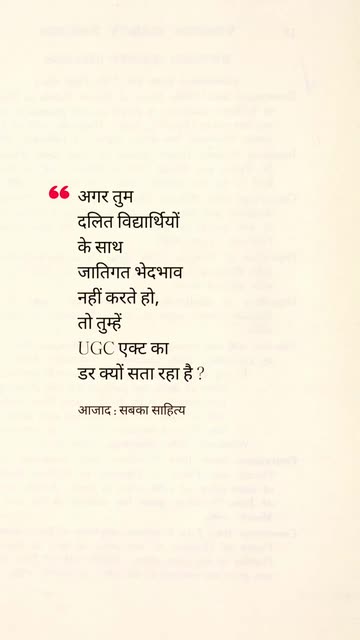 “ अगर तुम
दलित विद्यार्थियों
के साथ
जातिगत भेदभाव
नहीं करते हो,
तो तुम्हें
UGC एक्ट का
डर क्यों सता रहा है ?
आजाद : सबका साहित्य